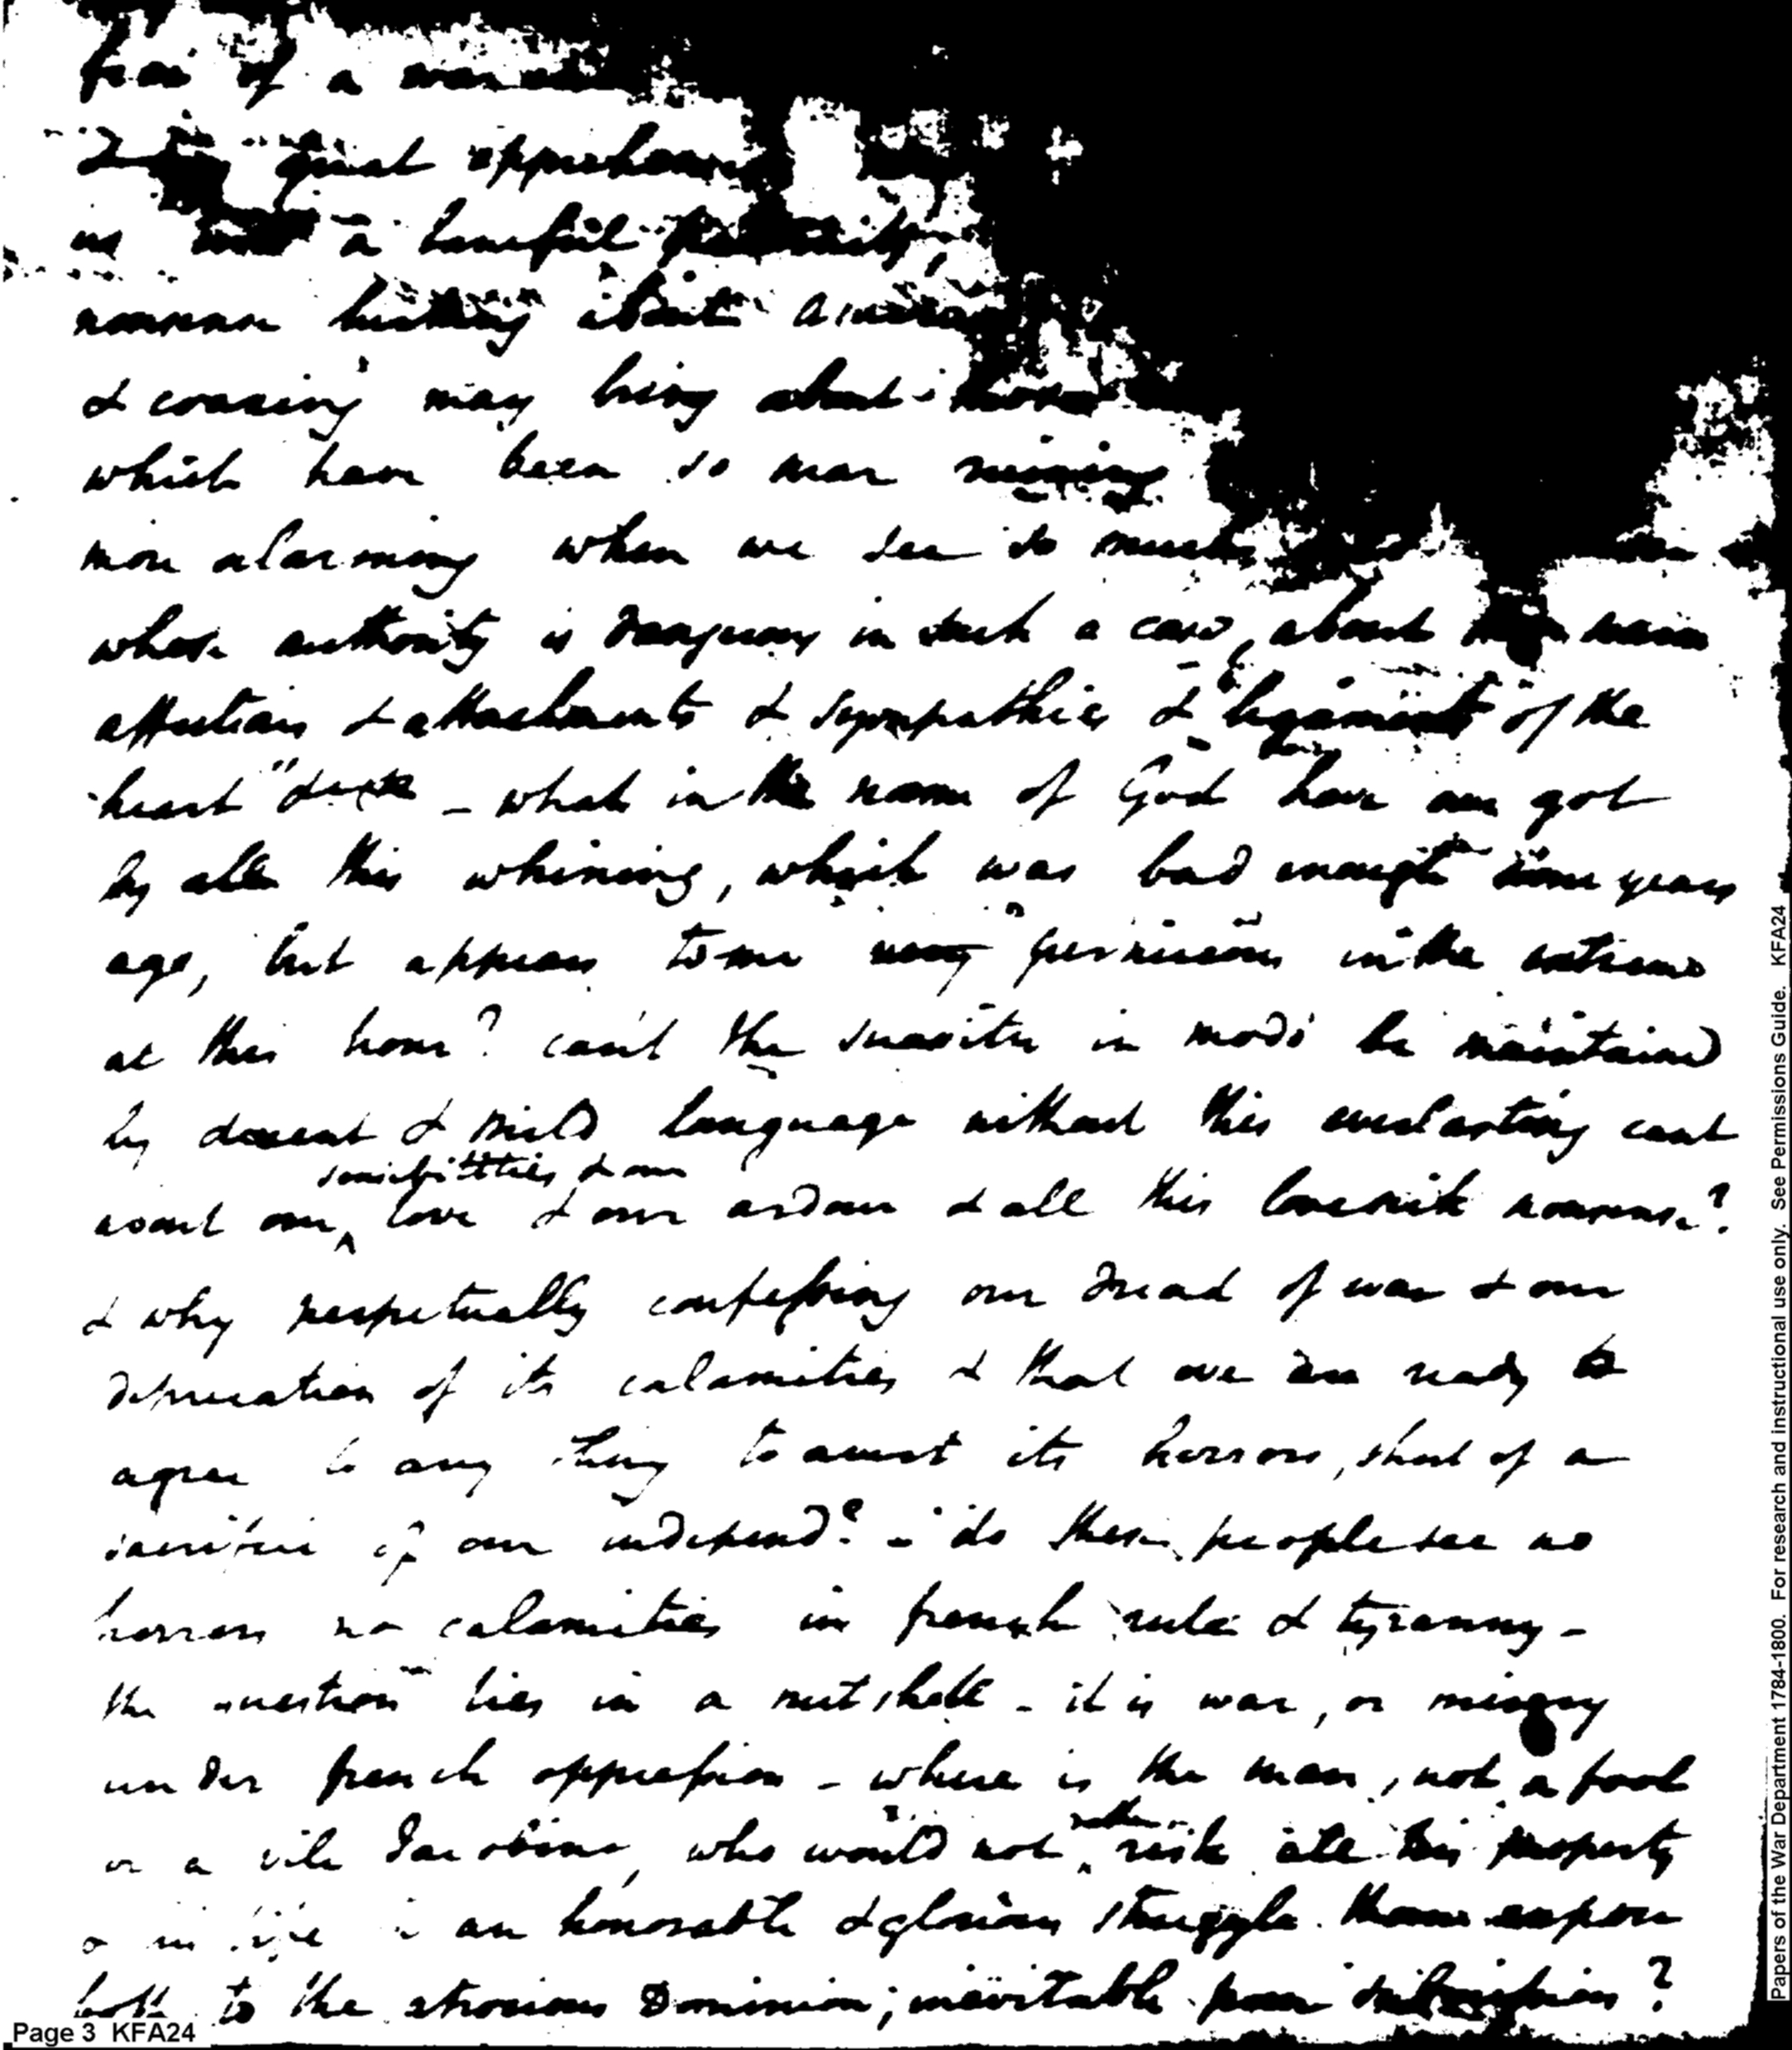 of a
great
a
nonsense about
& cooing may bring about
which have been so near ruining
more alarming when we see so much
whose authority is dangerous in such a case, about
affections & attachments & sympathies & of the
heart "&c - what in the name of God have we got
by all this whining, which was bad enough some years
ago, but appears to me pernicious in the extreme
at this hour? can't the suaviter in modo be maintained
by decent & mild language without this everlasting cant
sensibilities & our
about our ^ love & our ardour & all this lovesick nonsense?
& why perpetually confessing our dread of war & our
deprecation of its calamities & that we are ready to
agree to any thing to avert its horrors, short of a
sacrifice of our independ.ce - do these people see no
horrors no calamities in french rule & tyranny -
the question lies in a nutshell - it is war, or misery
under french oppression - where is the man, not a fool
rather
or a vile Jacobine, who would not ^ risk all his property
& in an honorable & glorious struggle than expose
both to the atrocious Dominion, inevitable from submission?
Page 3 KFA24
Papers of the War Department 1784-1800. For research and instructional use only. See Permissions Guide. KFA24